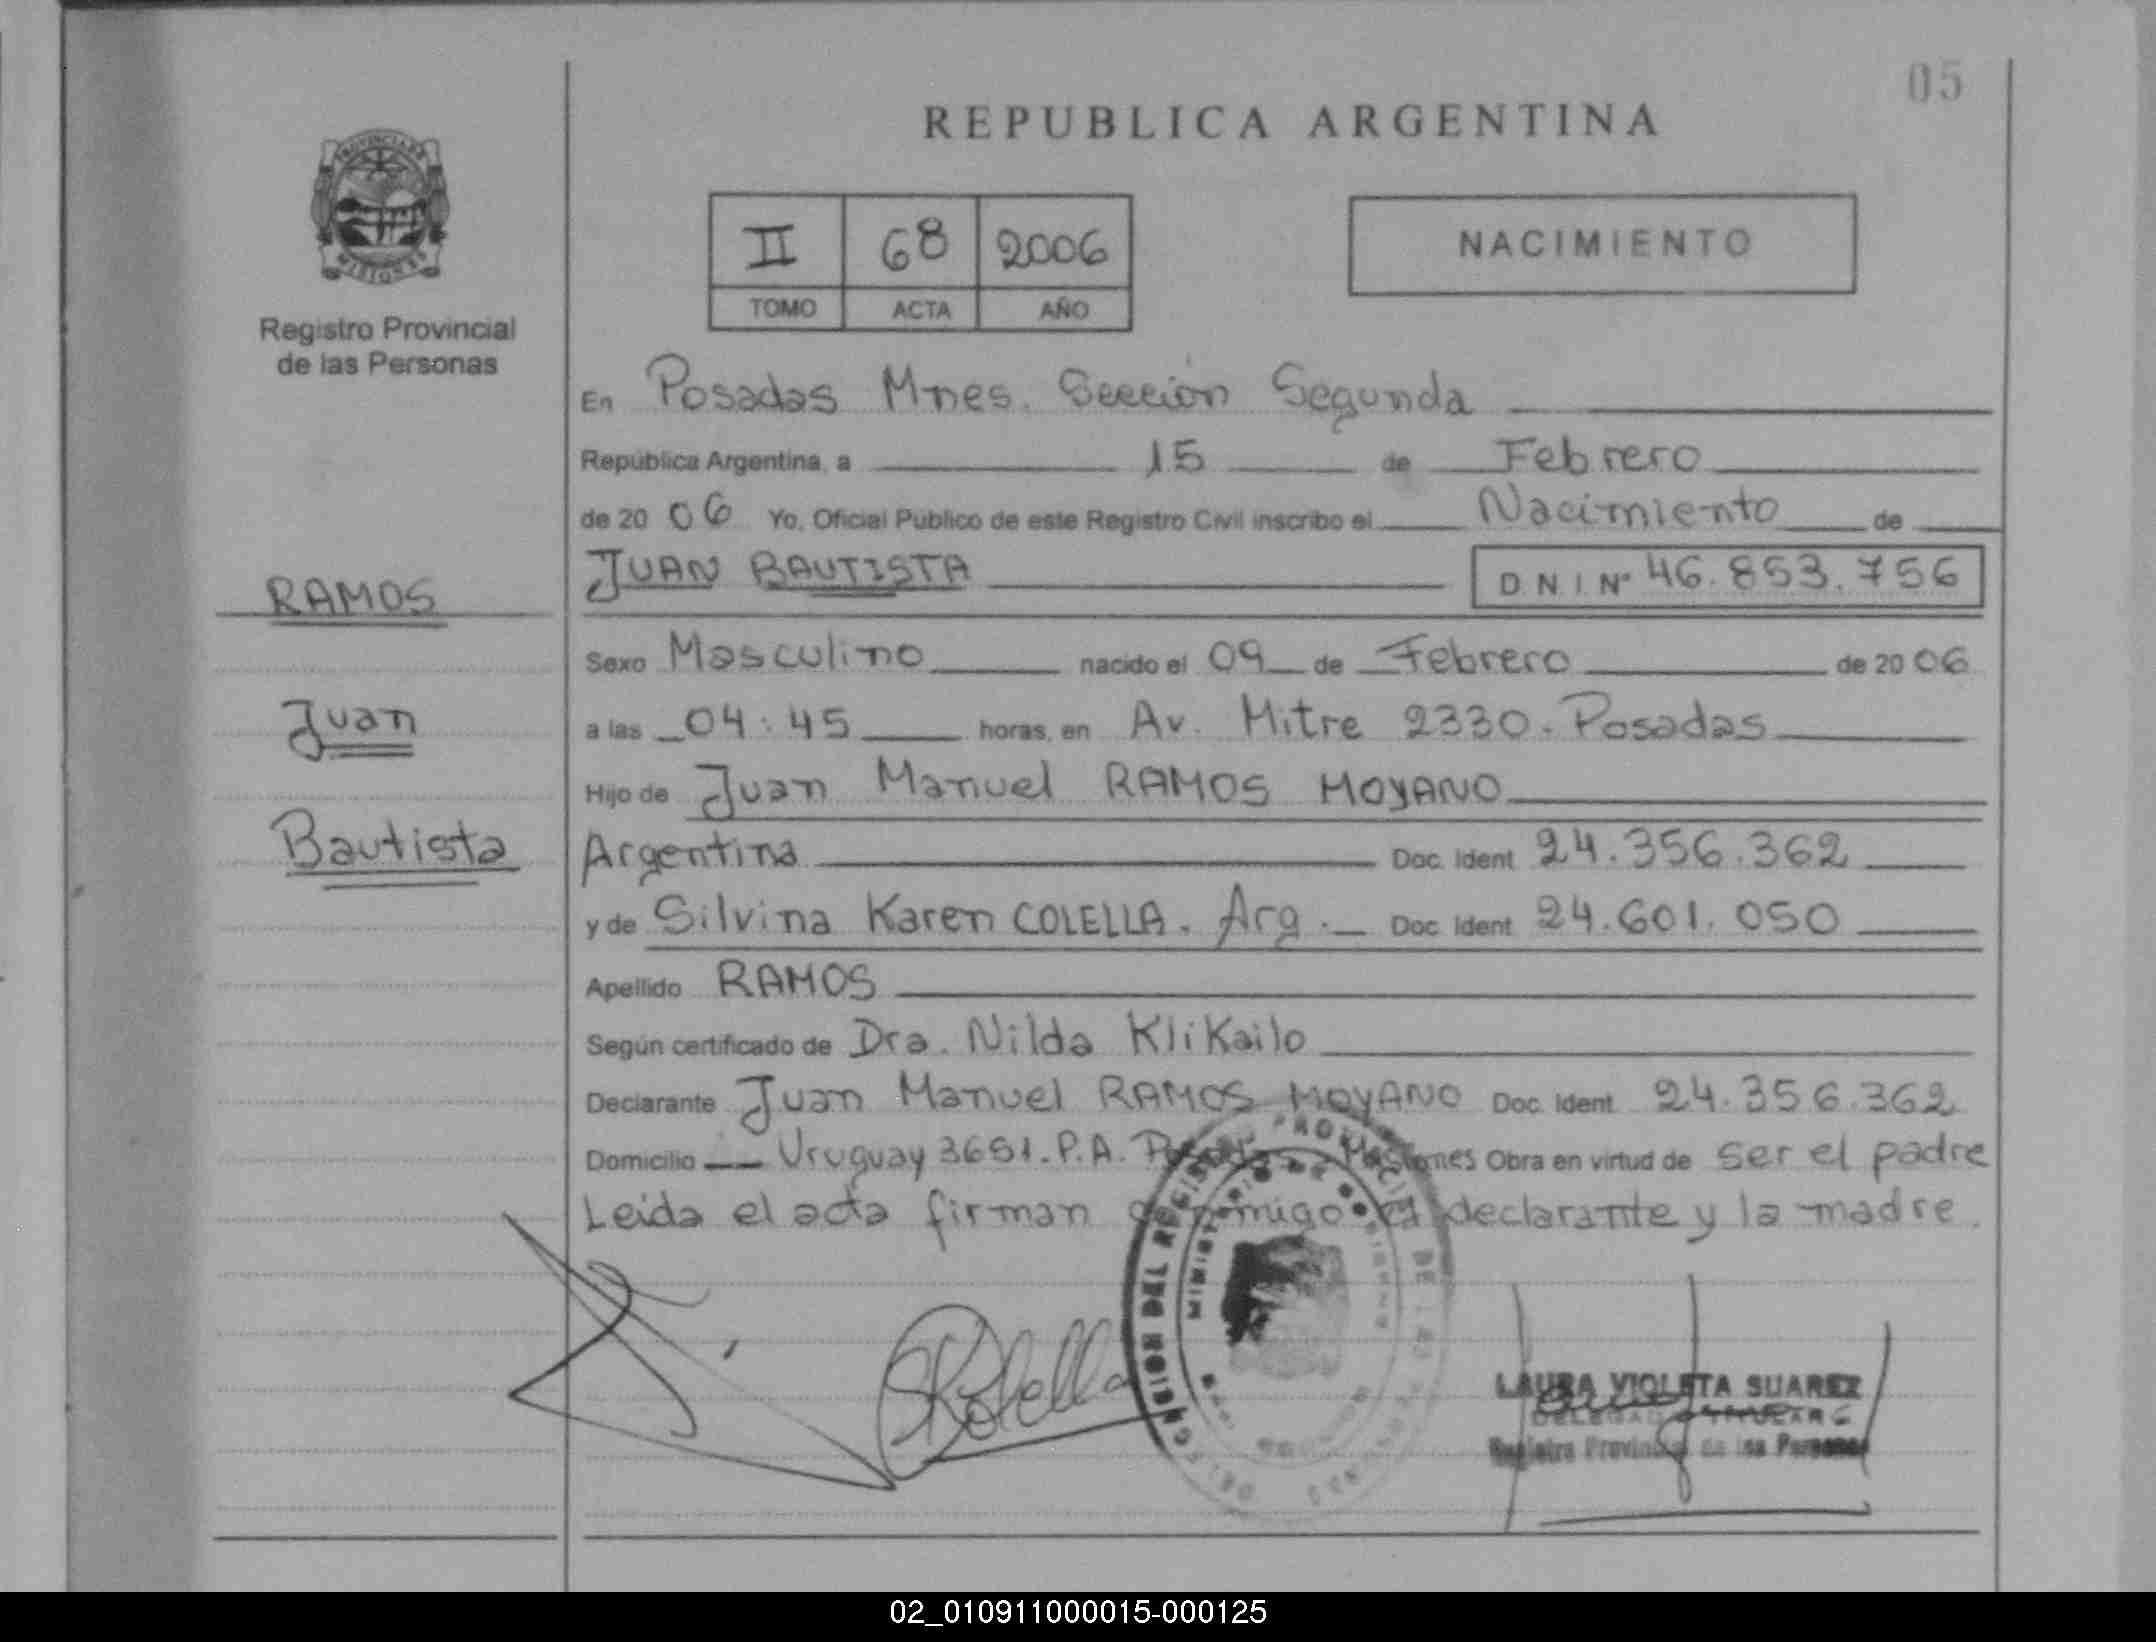 05
REPUBLICA ARGENTINA
PROVINCIA DE
MISIONES
Registro Provincial
de las Personas
II 68 2006
TOMO ACTA AÑO
NACIMIENTO
En Posadas Mnes. Sección Segunda
República Argentina, a 15 de Febrero
de 20 06 Yo, Oficial Público de este Registro Civil inscribo el Nacimiento de
JUAN BAUTISTA D.N.I. Nº 46.853.756
RAMOS
Juan
Bautista
Sexo Masculino nacido el 09 de Febrero de 20 06
a las 04:45 horas, en Av. Mitre 2330. Posadas
Hijo de Juan Manuel RAMOS MOYANO
Argentina Doc. Ident 24.356.362
y de Silvina Karen COLELLA. Arg. Doc. Ident 24.601.050
Apellido RAMOS
Según certificado de Dra. Nilda KliKailo
Declarante Juan Manuel RAMOS MOYANO Doc. Ident. 24.356.362
Domicilio Uruguay 3651. P.A. Misiones Obra en virtud de ser el padre
Leida el acta firman conmigo el declarante y la madre.
SKColella
LAURA VIOLETA SUAREZ
DELEGADA TITULAR
Registro Provincial de las Personas
02_010911000015-000125